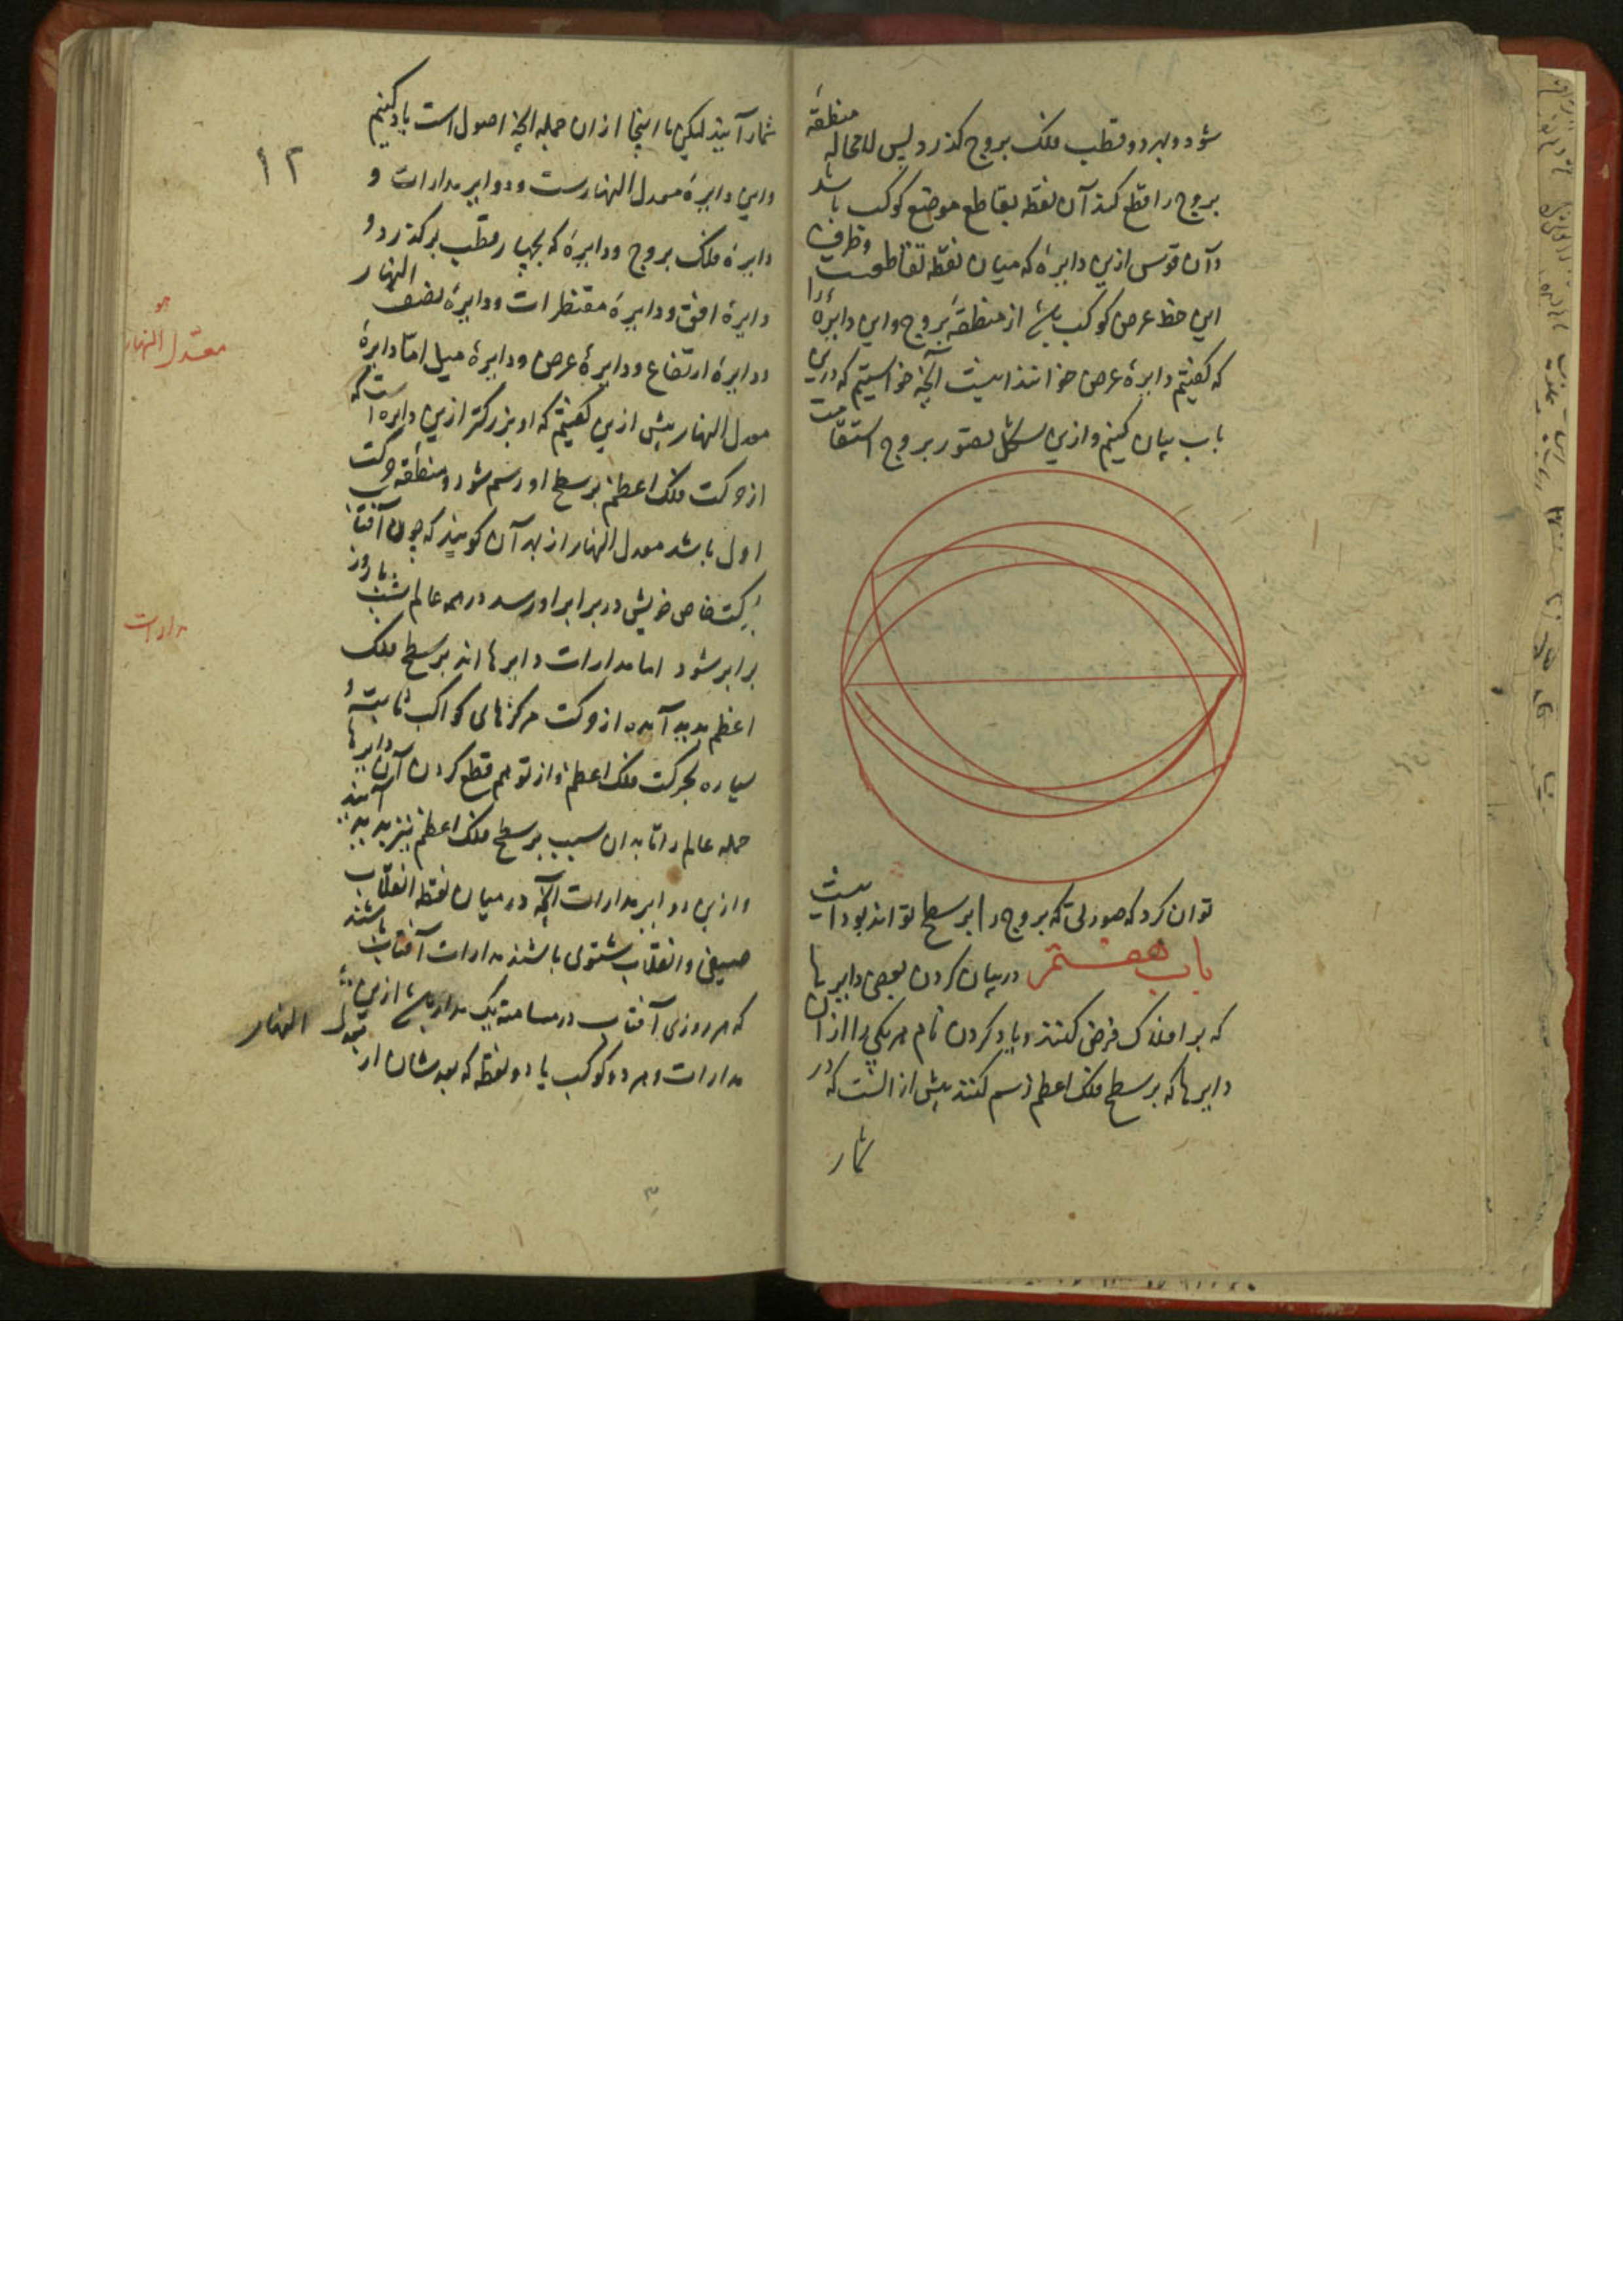 شود و بهر دو قطب فلک بروج گذرد پس لامحاله منطقهٔ
بروج را قطع کند آن نقطه تقاطع موضع کوکب باشد
و آن قوس ازین دایره که میان نقطه تقاطعست و طرف
این خط عرض کوکب باشد از منطقهٔ بروج و این دایره را
که گفتیم دایرهٔ عرض خوانند اینست آنچه خواستیم که درین
باب بیان کنیم و ازین شکل تصور بروج استقامت
توان کرد که صورتی که بروج را بر سطح تواند بود اینست
باب هفتم در بیان کردن بعضی دایرها
که بر افلاک فرض کنند و یاد کردن نام هر یکی را از آن
دایرها که بر سطح فلک اعظم رسم کنند بیش از انست که در
شمار
۱۲
شمار آیند لیکن ما اینجا از ان جمله آنچه اصول است یاد کنیم
و این دایرهٔ معدل النهارست و دوایر مدارات و
دایرهٔ فلک بروج و دایرهٔ که بچهار قطب برگذرد و
دایرهٔ افق و دایرهٔ مقنطرات و دایرهٔ نصف النهار
و دایرهٔ ارتفاع و دایرهٔ عرض و دایرهٔ میل اما دایرهٔ
معدل النهار
معدل النهار پیش ازین گفتیم که او بزرگتر ازین دایره است که
از حرکت فلک اعظم بر سطح او رسم شود و منطقه حرکت
اول باشد معدل النهار از بهر آن گویند که چون آفتاب
بحرکت خاص خویش در برابر او رسد در همه عالم شب با روز
مدارات
برابر شود اما مدارات دایرها اند بر سطح فلک
اعظم پدید آمده از حرکت مرکزهای کواکب ثابته و
سیاره بحرکت فلک اعظم و از توهم قطع کردن آن دایرها
جمله عالم را تا بدان سبب بر سطح فلک اعظم نیز پدید آیند
و ازین دوایر مدارات آنچه در میان نقطه انقلاب
صیفی و انقلاب شتوی باشند مدارات آفتاب باشند
که هر روزی آفتاب در مسامتهٔ یک مدار باشد ازین
مدارات و هر دو کوکب یا دو نقطه که بعدشان از معدل النهار